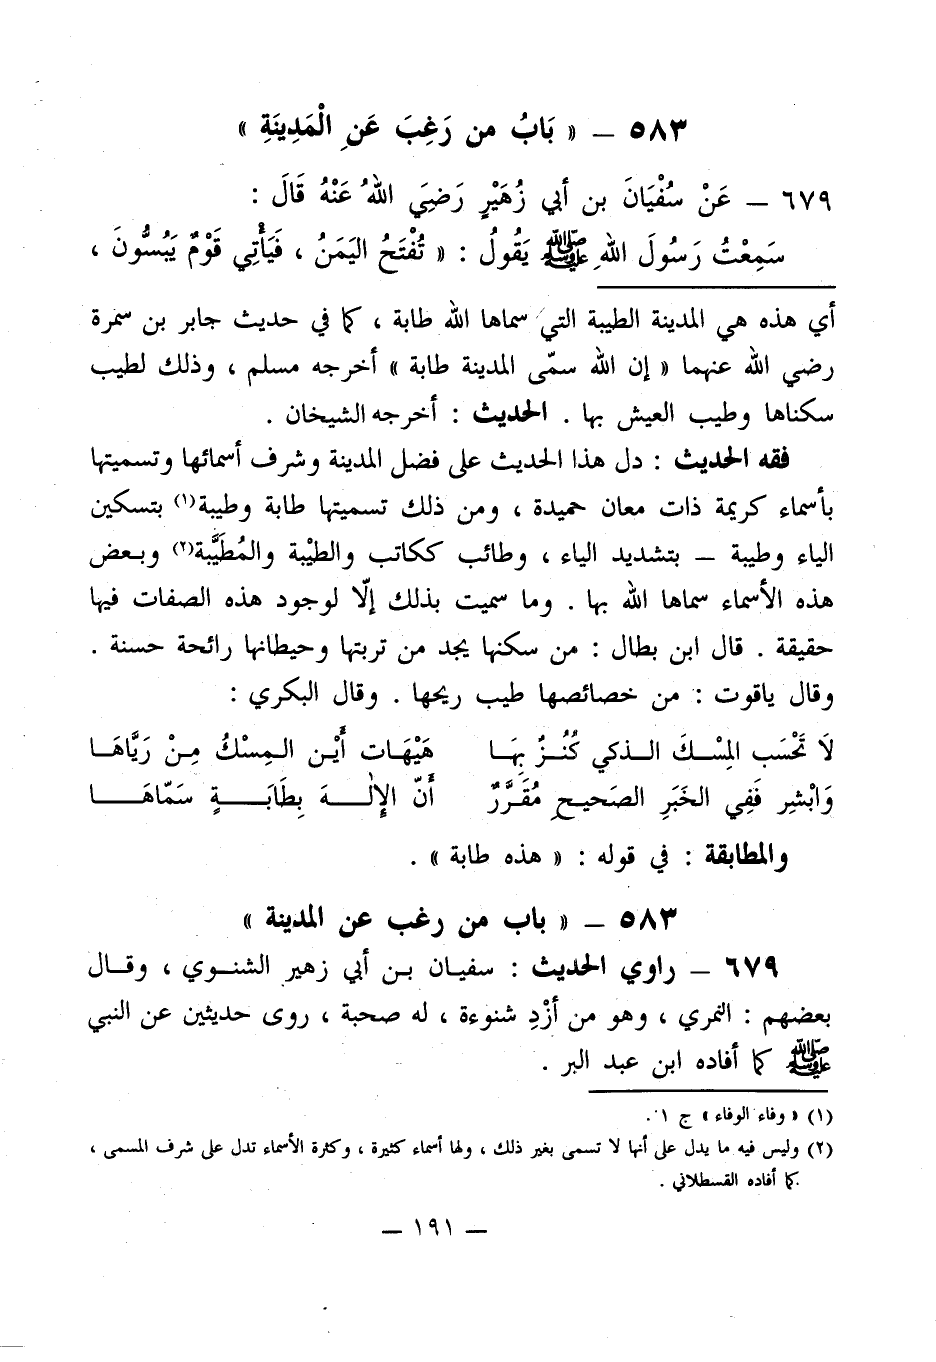 ٥٨٣ – « بَابُ من رَغِبَ عَنِ الْمَدِينَةِ »
٦٧٩ – عَنْ سُفْيَانَ بن أبي زُهَيْرٍ رَضِيَ اللهُ عَنْهُ قَالَ :
سَمِعْتُ رَسُولَ اللهِ ﷺ يَقُولُ : « تُفْتَحُ اليَمَنُ ، فَيَأْتِي قَوْمٌ يَبُسُّونَ ،
أي هذه هي المدينة الطيبة التي سماها الله طابة ، كما في حديث جابر بن سمرة
رضي الله عنهما « إن الله سمّى المدينة طابة » أخرجه مسلم ، وذلك لطيب
سكناها وطيب العيش بها . الحديث : أخرجه الشيخان .
فقه الحديث : دل هذا الحديث على فضل المدينة وشرف أسمائها وتسميتها
بأسماء كريمة ذات معان حميدة ، ومن ذلك تسميتها طابة وطيبة(١) بتسكين
الياء وطيبة – بتشديد الياء ، وطائب ككاتب والطيْبة والمُطَيَّبة(٢) وبعض
هذه الأسماء سماها الله بها . وما سميت بذلك إلّا لوجود هذه الصفات فيها
حقيقة . قال ابن بطال : من سكنها يجد من تربتها وحيطانها رائحة حسنة .
وقال ياقوت : من خصائصها طيب ريحها . وقال البكري :
لَا تَحْسَب المِسْكَ الذكي كُنُزٌ بِهَا هَيْهَات أَيْن المِسْكُ مِنْ رَيَّاهَا
وَابْشِر فَفِي الخَبَرِ الصَحيحِ مُقَرَّرٌ أَنّ الإِلٰهَ بِطَابَةٍ سَمّاهَا
والمطابقة : في قوله : « هذه طابة » .
٥٨٣ – « باب من رغب عن المدينة »
٦٧٩ – راوي الحديث : سفيان بن أبي زهير الشنوي ، وقال
بعضهم : النمري ، وهو من أزْدِ شنوءة ، له صحبة ، روى حديثين عن النبي
ﷺ كما أفاده ابن عبد البر .
(١) « وفاء الوفاء » ج ١ .
(٢) وليس فيه ما يدل على أنها لا تسمى بغير ذلك ، ولها أسماء كثيرة ، وكثرة الأسماء تدل على شرف المسمى ،
كما أفاده القسطلاني .
– ١٩١ –